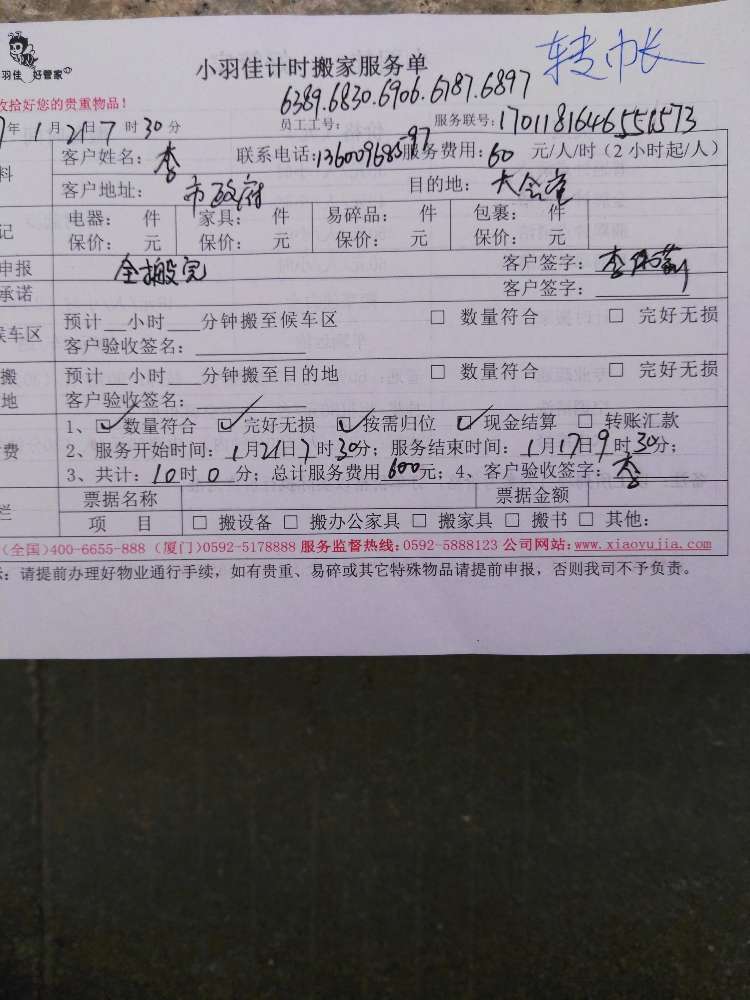 转帐
羽佳 好管家
小羽佳计时搬家服务单
收拾好您的贵重物品！
6389.6830.6906.6787.6897
年1月21日7时30分 员工工号： 服务联号：1701181646551573
料 客户姓名：李 联系电话： 服务费用：60 元/人/时（2小时起/人）
客户地址：市政府 目的地：大会堂
记 电器： 件 家具： 件 易碎品： 件 包裹： 件
保价： 元 保价： 元 保价： 元 保价： 元
申报 全搬完 客户签字：李
承诺 客户签字：
候车区 预计__小时___分钟搬至候车区 □ 数量符合 □ 完好无损
客户验收签名：
搬 预计__小时___分钟搬至目的地 □ 数量符合 □ 完好无损
地 客户验收签名：
1、☑ 数量符合 ☑ 完好无损 ☑ 按需归位 ☑ 现金结算 □ 转账汇款
费 2、服务开始时间：1月21日7时30分；服务结束时间：1月17日9时30分；
3、共计：10时0分；总计服务费用600元；4、客户验收签字：李
栏 票据名称 票据金额
项 目 □ 搬设备 □ 搬办公家具 □ 搬家具 □ 搬书 □ 其他：
(全国)400-6655-888（厦门)0592-5178888 服务监督热线:0592-5888123 公司网站:www.xiaoyujia.com
示：请提前办理好物业通行手续，如有贵重、易碎或其它特殊物品请提前申报，否则我司不予负责。